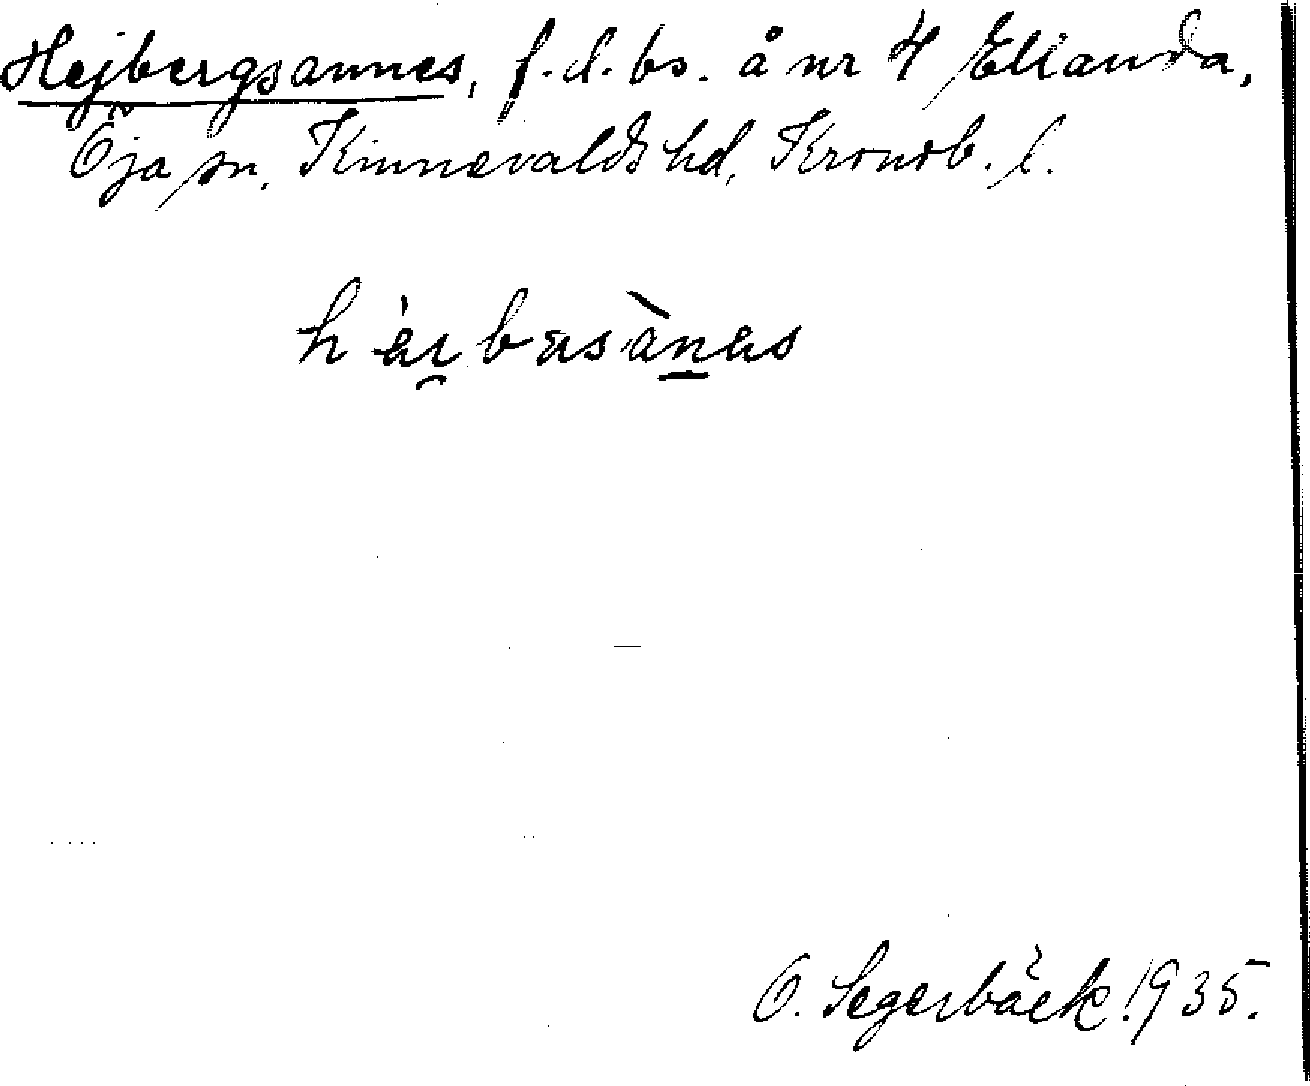 Hejbergsannes, f.d. bs. å nr 4 Elianda,
Öja sn, Kinnevalds hd, Kronob. l.
O. Segerbäck 1935.